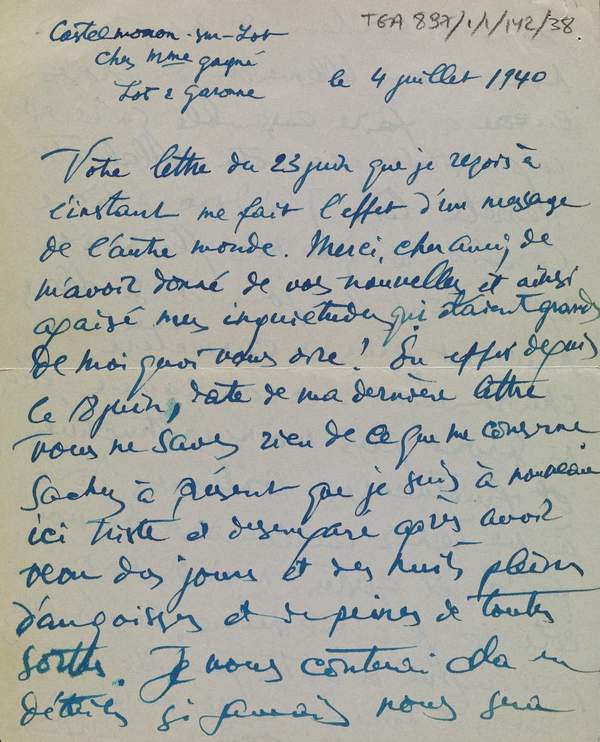 TGA 897/1/1/142/38
Castelmoron-sur-Lot
chez Mme gagné
Lot & Garonne
le 4 juillet 1940
Votre lettre du 23 juin que je reçois à
l'instant me fait l'effet d'un message
de l'autre monde. Merci, cher ami, de
m'avoir donné de vos nouvelles et ainsi
apaisé mes inquiétudes, qui étaient grandes
De moi quoi vous dire! En effet depuis
le 8 juin, date de ma dernière lettre
vous ne savez rien de ce que me concerne
Sachez à présent que je suis à nouveau
ici triste et desempare après avoir
vecu des jours et des nuits pleins
d'angoisses et de peines de toutes
sortes. Je vous conterai cela en
détails si jamais nous sera